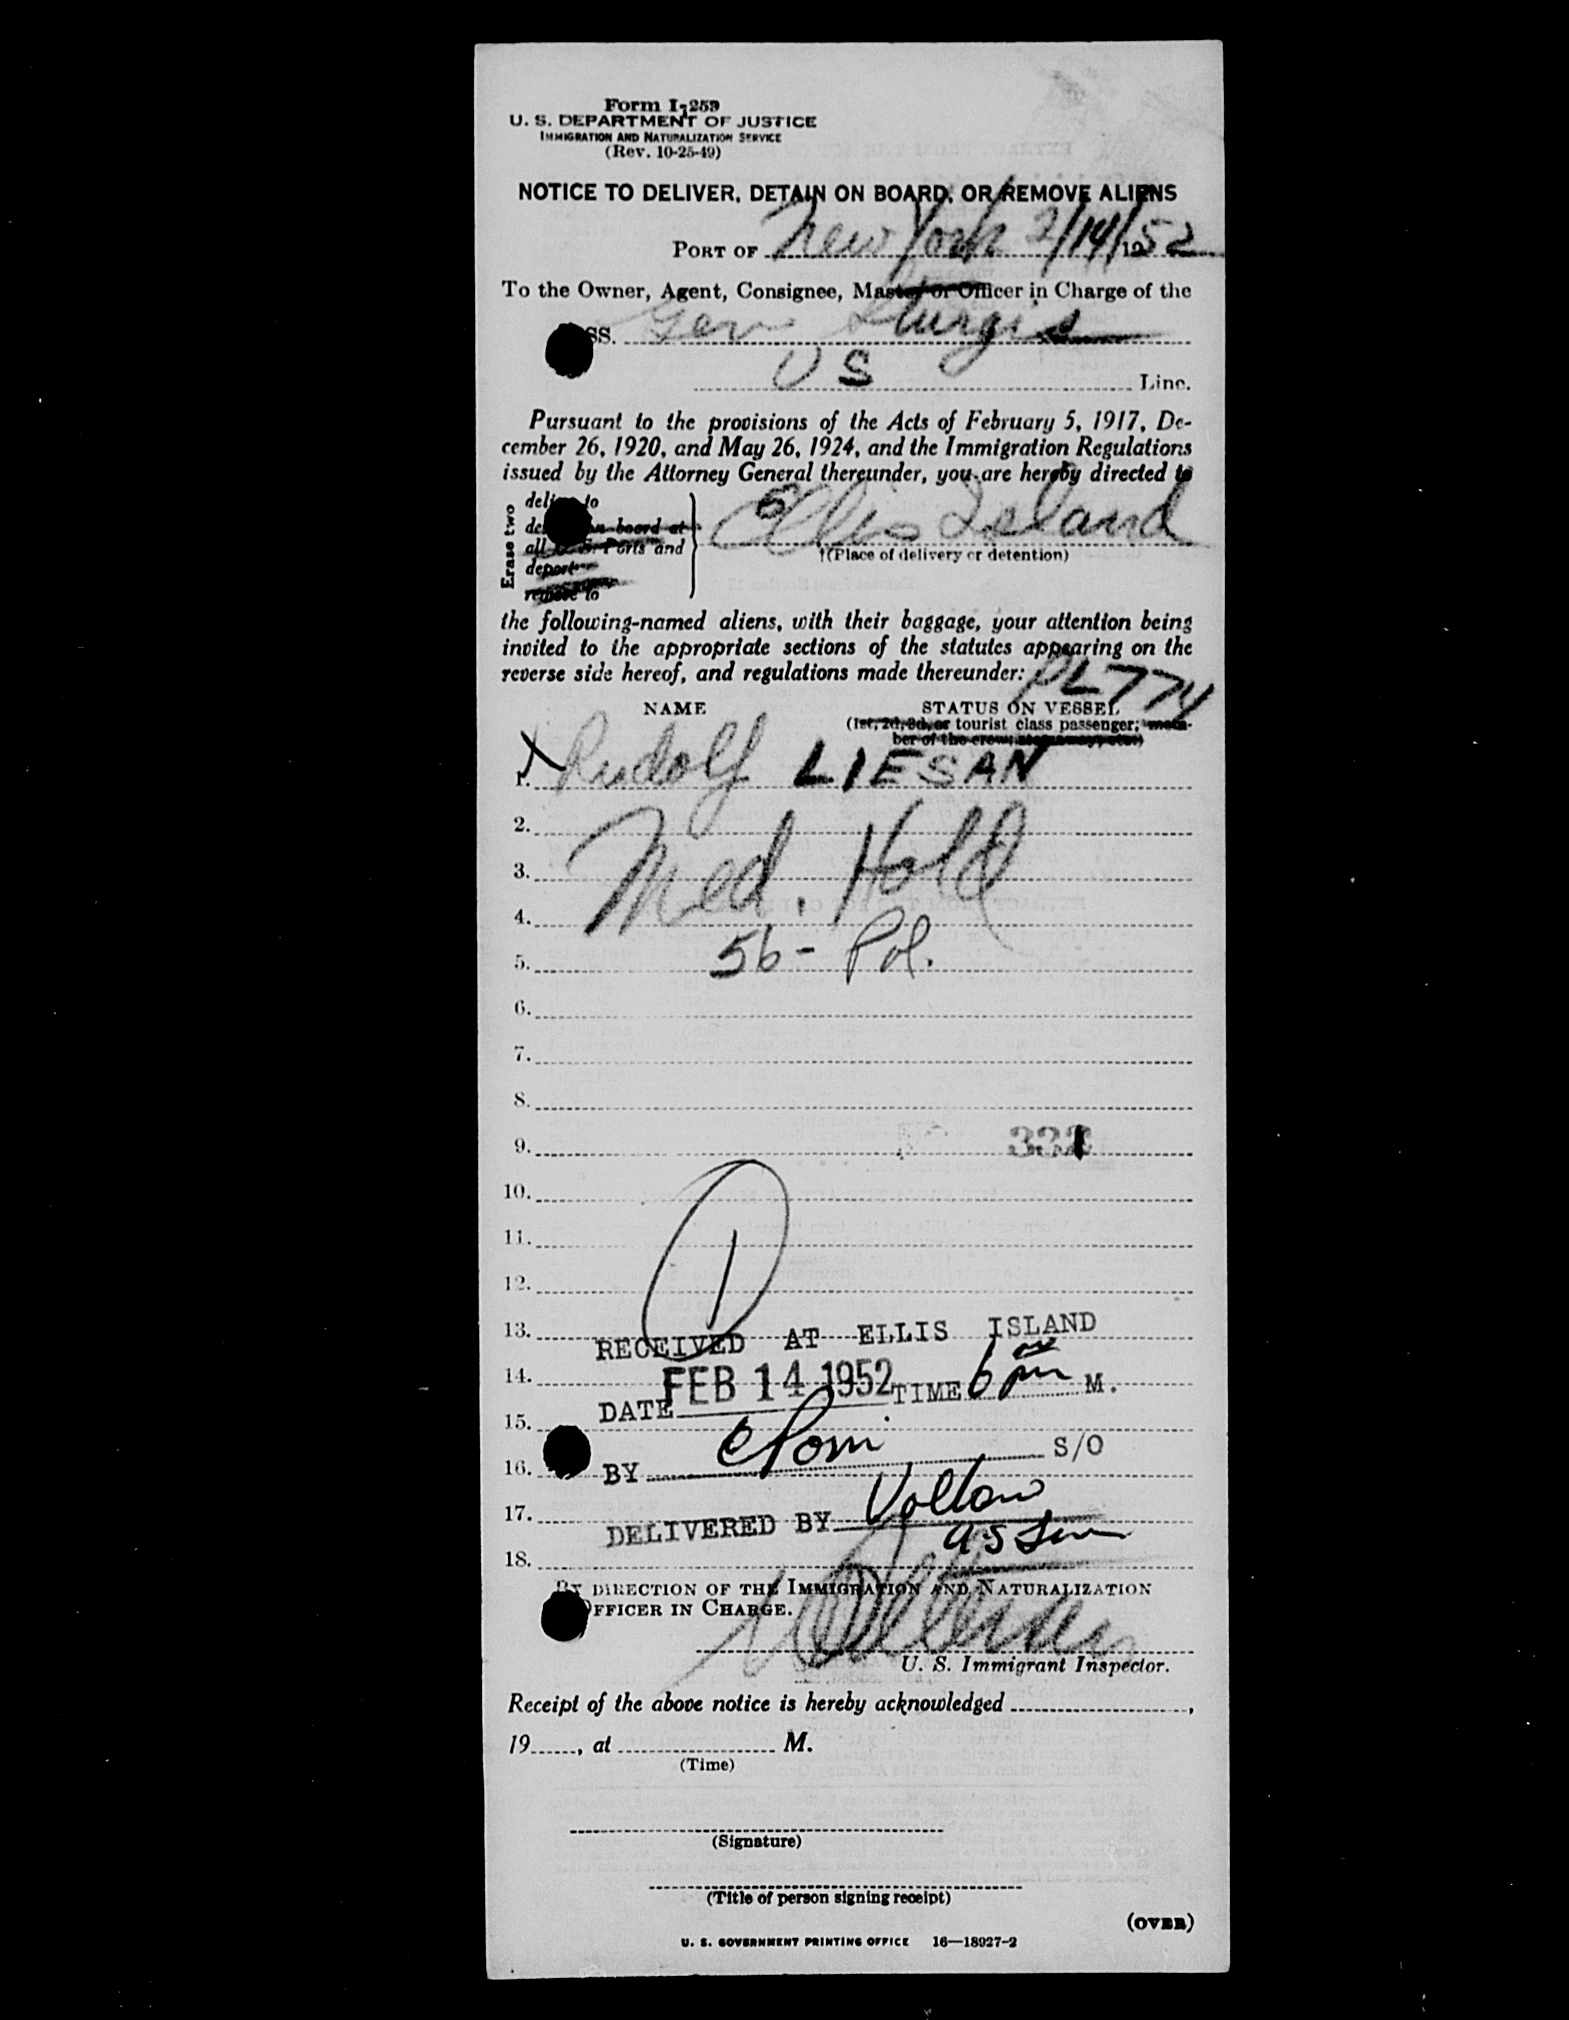 Form I-259
U. S. DEPARTMENT OF JUSTICE
IMMIGRATION AND NATURALIZATION SERVICE
(Rev. 10-25-49)
NOTICE TO DELIVER, DETAIN ON BOARD, OR REMOVE ALIENS
PORT OF New York 2/14/1952
To the Owner, Agent, Consignee, Master or Officer in Charge of the
SS. Gen Sturgis
US Line.
Pursuant to the provisions of the Acts of February 5, 1917, De-
cember 26, 1920, and May 26, 1924, and the Immigration Regulations
issued by the Attorney General thereunder, you are hereby directed to
Erase two
deliver to
on board at
all U. S. Ports and
deport
remove to
Ellis Island
(Place of delivery or detention)
the following-named aliens, with their baggage, your attention being
invited to the appropriate sections of the statutes appearing on the
reverse side hereof, and regulations made thereunder: PL774
NAME STATUS ON VESSEL
(1st, 2d, 3d, or tourist class passenger; mem-
ber of the crew,
1. Rudolf LIESAN
2.
3. Med. Hold
4.
5. 56 - Pol.
6.
7.
8.
9. 331
10.
11. 1
12.
13. RECEIVED AT ELLIS ISLAND
14. DATE FEB 14 1952 TIME 6 pm M.
15.
16. BY S/O
17. DELIVERED BY
18.
BY DIRECTION OF THE IMMIGRATION AND NATURALIZATION
OFFICER IN CHARGE.
U. S. Immigrant Inspector.
Receipt of the above notice is hereby acknowledged ,
19 , at M.
(Time)
(Signature)
(Title of person signing receipt)
(OVER)
U. S. GOVERNMENT PRINTING OFFICE 16—18927-2